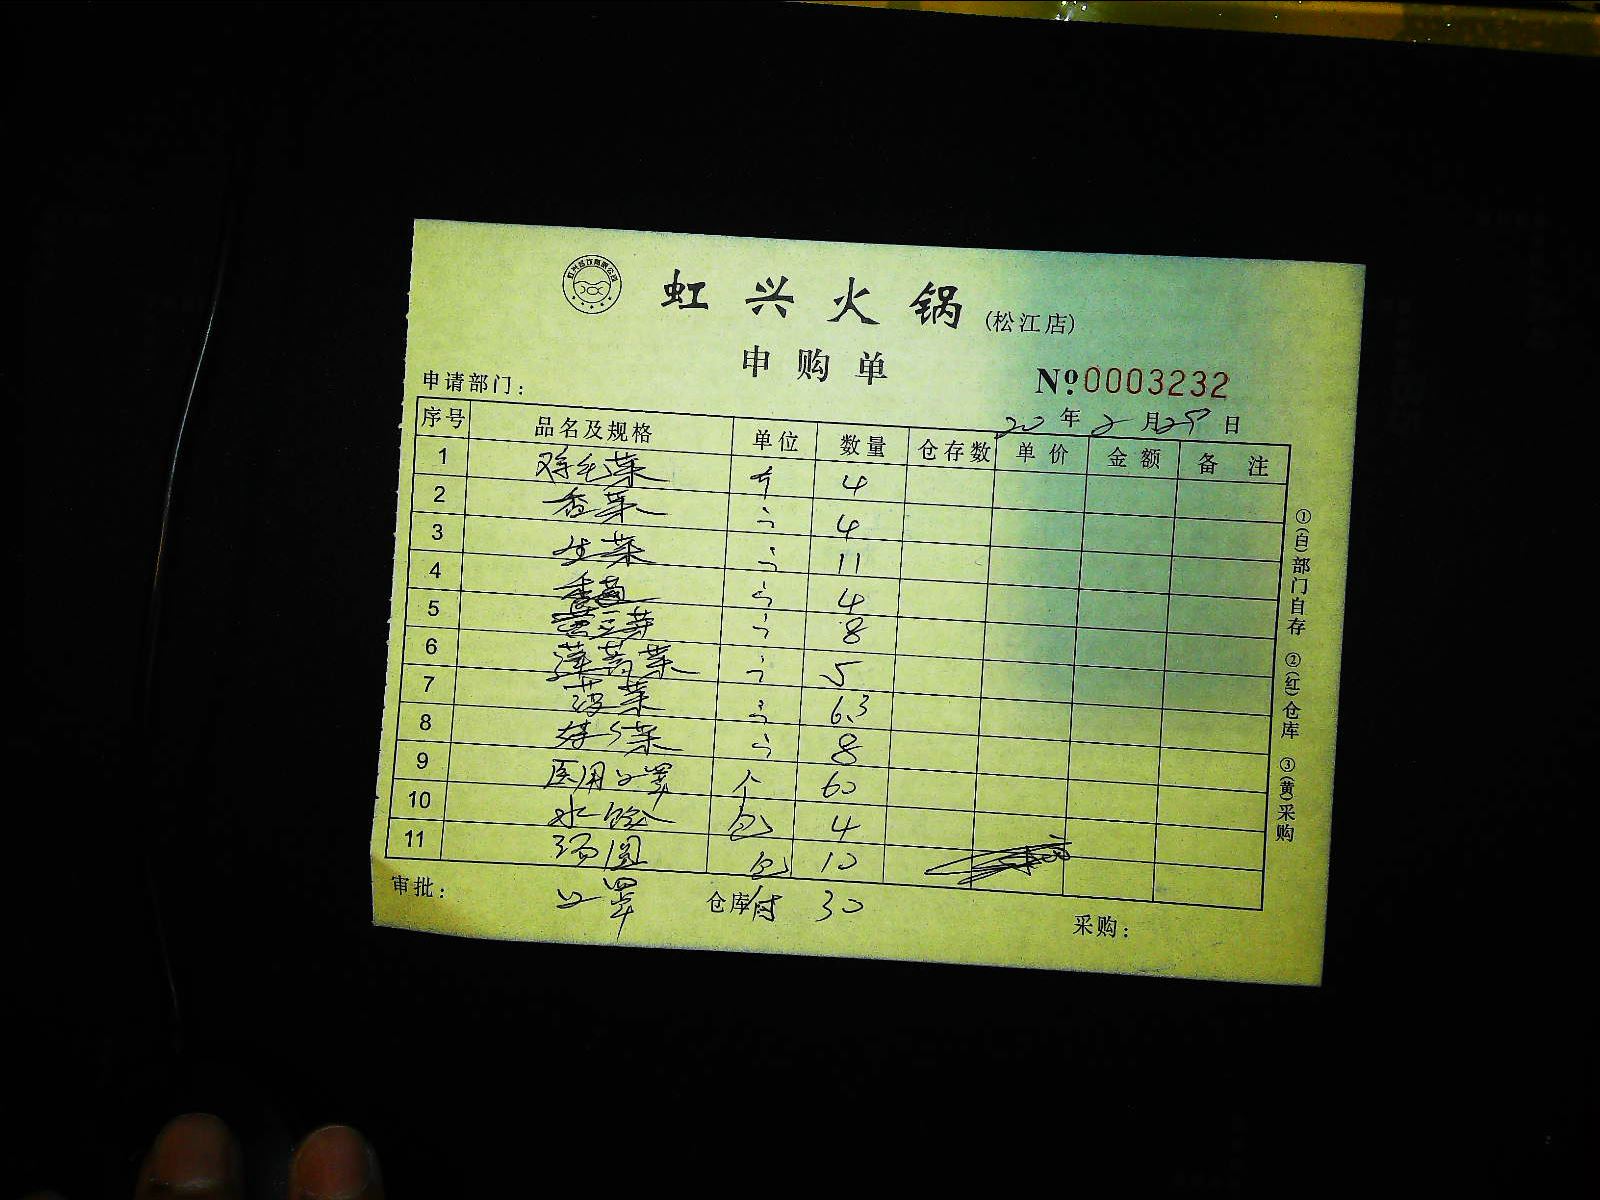 虹兴火锅(松江店)
申购单
申请部门: №0003232
20年2月29日
序号 品名及规格 单位 数量 仓存数 单价 金额 备注
1 鸡毛菜 斤 4
2 香菜 〃 4
3 生菜 〃 11
4 香菇 〃 4
5 黄豆芽 〃 8
6 蓬蒿菜 〃 5
7 菠菜 〃 6.3
8 娃娃菜 〃 8
9 医用口罩 个 60
10 水饺 包 4
11 汤圆 包 10
审批: 口罩 仓库付 30 采购:
①(白)部门自存 ②(红)仓库 ③(黄)采购